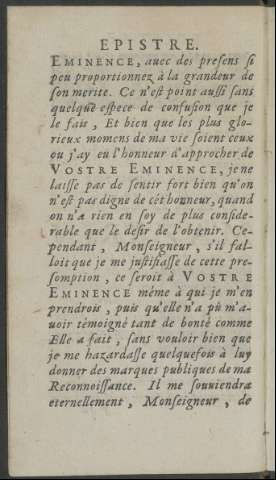 EPISTRE.
EMINENCE, auec des presens si
peu proportionnez à la grandeur de
son merite. Ce n'est point aussi sans
quelque espece de confusion que je
le fais, Et bien que les plus glo-
rieux momens de ma vie soient ceux
ou j'ay eu l'honneur d'approcher de
VOSTRE EMINENCE, je ne
laisse pas de sentir fort bien qu'on
n'est pas digne de cét honneur, quand
on n'a rien en soy de plus conside-
rable que le desir de l'obtenir. Ce-
pendant, Monseigneur, s'il fal-
loit que je me justifiasse de cette pre-
somption, ce seroit à VOSTRE
EMINENCE même à qui je m'en
prendrois, puis qu'elle n'a pû m'a-
uoir témoigné tant de bonté comme
Elle a fait, sans vouloir bien que
je me hazardasse quelquefois à luy
donner des marques publiques de ma
Reconnoissance. Il me souuiendra
eternellement, Monseigneur, de